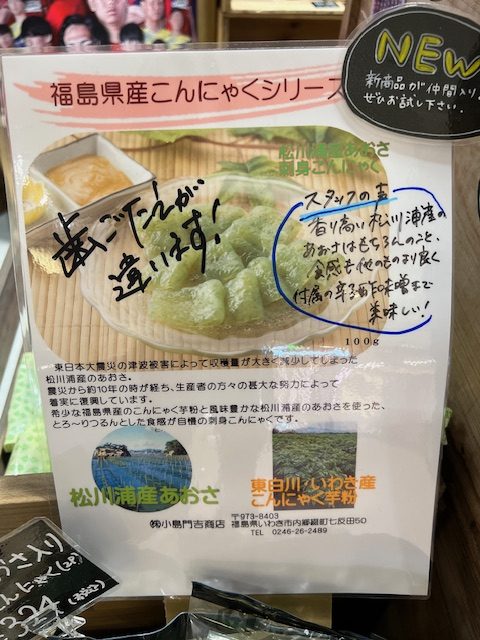 NEW
新商品が仲間入り!
ぜひお試し下さい.
福島県産こんにゃくシリーズ
松川浦産あおさ
刺身こんにゃく
歯ごたえが
違います!
スタッフの声
香り高い松川浦産の
あおさはもちろんのこと、
食感も他のものより良く
付属の辛子酢味噌まで
美味しい!
100g
東日本大震災の津波被害によって収穫量が大きく減少してしまった
松川浦産のあおさ。
震災から約10年の時が経ち、生産者の方々の甚大な努力によって
着実に復興しています。
希少な福島県産のこんにゃく芋粉と風味豊かな松川浦産のあおさを使った、
とろ~りつるんとした食感が自慢の刺身こんにゃくです。
松川浦産あおさ
東白川/いわき産
こんにゃく芋粉
㈱小島門吉商店
〒973-8403
福島県いわき市内郷綴町七反田50
TEL 0246-26-2489
おさ入り
324
(税込)